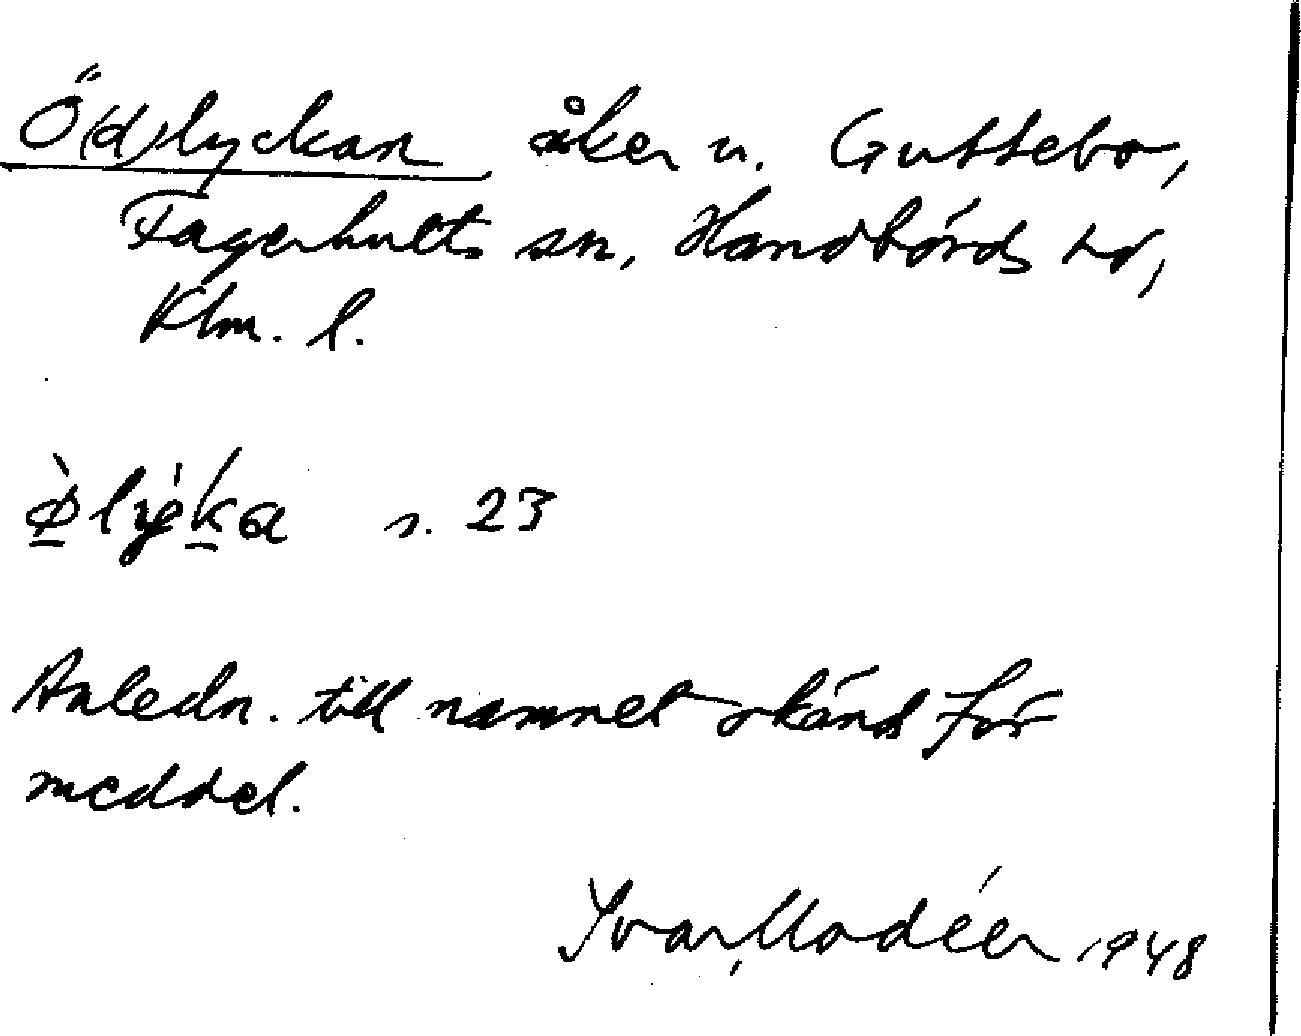 Ö(d)lyckan åker u. Guttebo,
Fagerhults sn, Handbörds hd,
Klm. l.
s. 23
Anledn. till namnet okänd för
meddel.
Ivar Modéer 1948